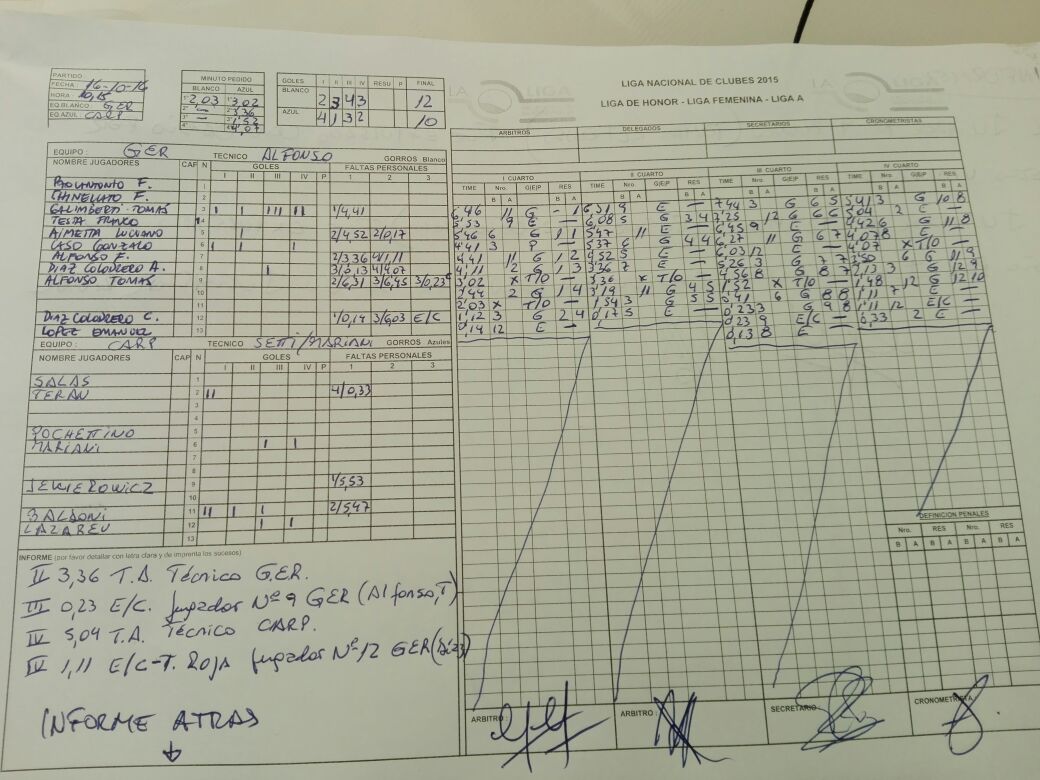 LIGA NACIONAL DE CLUBES 2015
LIGA DE HONOR - LIGA FEMENINA - LIGA A
PARTIDO
FECHA : 16-10-16
HORA : 10,15
EQ.BLANCO : GER
EQ.AZUL CARP
MINUTO PEDIDO
BLANCO AZUL
1° 2,03 1° 3,02
2° — 2° 3,36
3° — 3° 1,52
4° 4,07
GOLES I II III IV RESU P FINAL
BLANCO 2 3 4 3 12
AZUL 4 1 3 2 10
ARBITROS DELEGADOS SECRETARIOS CRONOMETRISTAS
EQUIPO : GER TECNICO ALFONSO GORROS Blanco
NOMBRE JUGADORES CAP N GOLES FALTAS PERSONALES
I II III IV P 1 2 3
CHINELLATO F. 2
GALIMBERTI TOMAS 3 I I III II 1/4,41
TESTA FRANCO 4
AIMETTA LUCIANO 5 I 2/4,52 2/0,17
CASO GONZALO 6 I I I
ALFONSO F. 7 2/3,36 4/1,11
DIAZ COLODRERO A. 8 I 3/0,13 4/4,07
ALFONSO TOMAS 9 2/6,31 3/6,45 3/0,23
10
11
DIAZ COLODRERO C. 12 1/0,14 3/6,03 E/C
LOPEZ EMANUEL 13
EQUIPO : CARP TECNICO SETTI/MARIANI GORROS Azules
NOMBRE JUGADORES CAP N GOLES FALTAS PERSONALES
I II III IV P 1 2 3
SALAS 1
TERAN 2 II 4/0,33
3
4
POCHETTINO 5
MARIANI 6 I I
7
8
9 1/5,53
10
BALDONI 11 II I I 2/5,47
LAZAREU 12 I I
13
I CUARTO II CUARTO III CUARTO IV CUARTO
TIME Nro. G/E/P RES TIME Nro. G/E/P RES TIME Nro. G/E/P RES TIME Nro. G/E/P RES
B A B A B A B A
6,46 11 G - 1 6,31 9 E — 7,44 3 G 6 5 5,41 3 G 10 8
5,53 9 E — 6,08 5 G 3 4 7,25 12 G 6 6 5,04 2 E —
5,46 6 G 1 1 5,47 11 E — 6,45 9 E —
4,41 3 P — 5,37 6 G 4 4 6,27 11 G 6 7 4,07 8 E —
4,41 11 G 1 2 4,52 5 E — 6,03 12 E — 4,07 X T/O —
4,11 2 G 1 3 3,36 7 E — 5,26 3 G 7 7 3,50 6 G 11 9
3,02 X T/O — 3,36 X T/O — 4,56 8 G 8 7 2,13 3 G 12 9
2,44 2 G 1 4 3,19 11 G 4 5 1,52 X T/O — 1,48 12 G 12 10
2,03 X T/O — 1,54 3 G 5 5 0,41 6 G 8 8 1,11 7 E —
1,12 3 G 2 4 0,17 5 E — 0,23 3 G 9 8 1,11 12 E/C —
0,14 12 E — 0,23 9 E/C — 0,33 2 E —
0,13 8 E —
DEFINICION PENALES
Nro. RES Nro. RES
B A B A
INFORME (por favor detallar con letra clara y de imprenta los sucesos)
II 3,36 T.A. Técnico GER.
III 0,23 E/C. jugador Nº 9 GER (Alfonso,T)
IV 5,04 T.A. Técnico CARP.
IV 1,11 E/C-T. ROJA jugador Nº 12 GER (Díaz)
INFORME ATRAS
ARBITRO : ARBITRO : SECRETARIO : CRONOMETRISTA